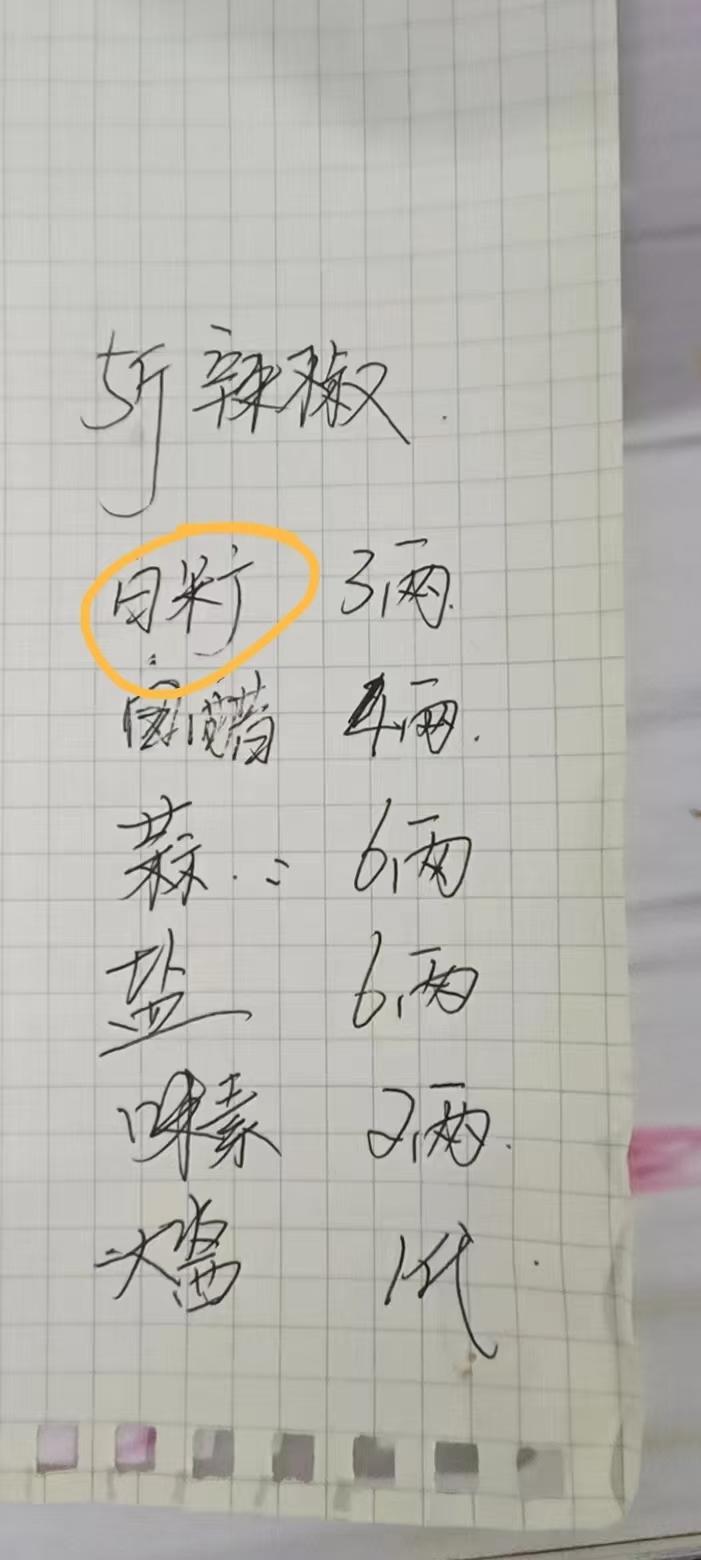 5斤辣椒.
白糖 3两.
白醋 4两.
蒜.. 6两
盐 6两
味素 2两.
大酱 1代.